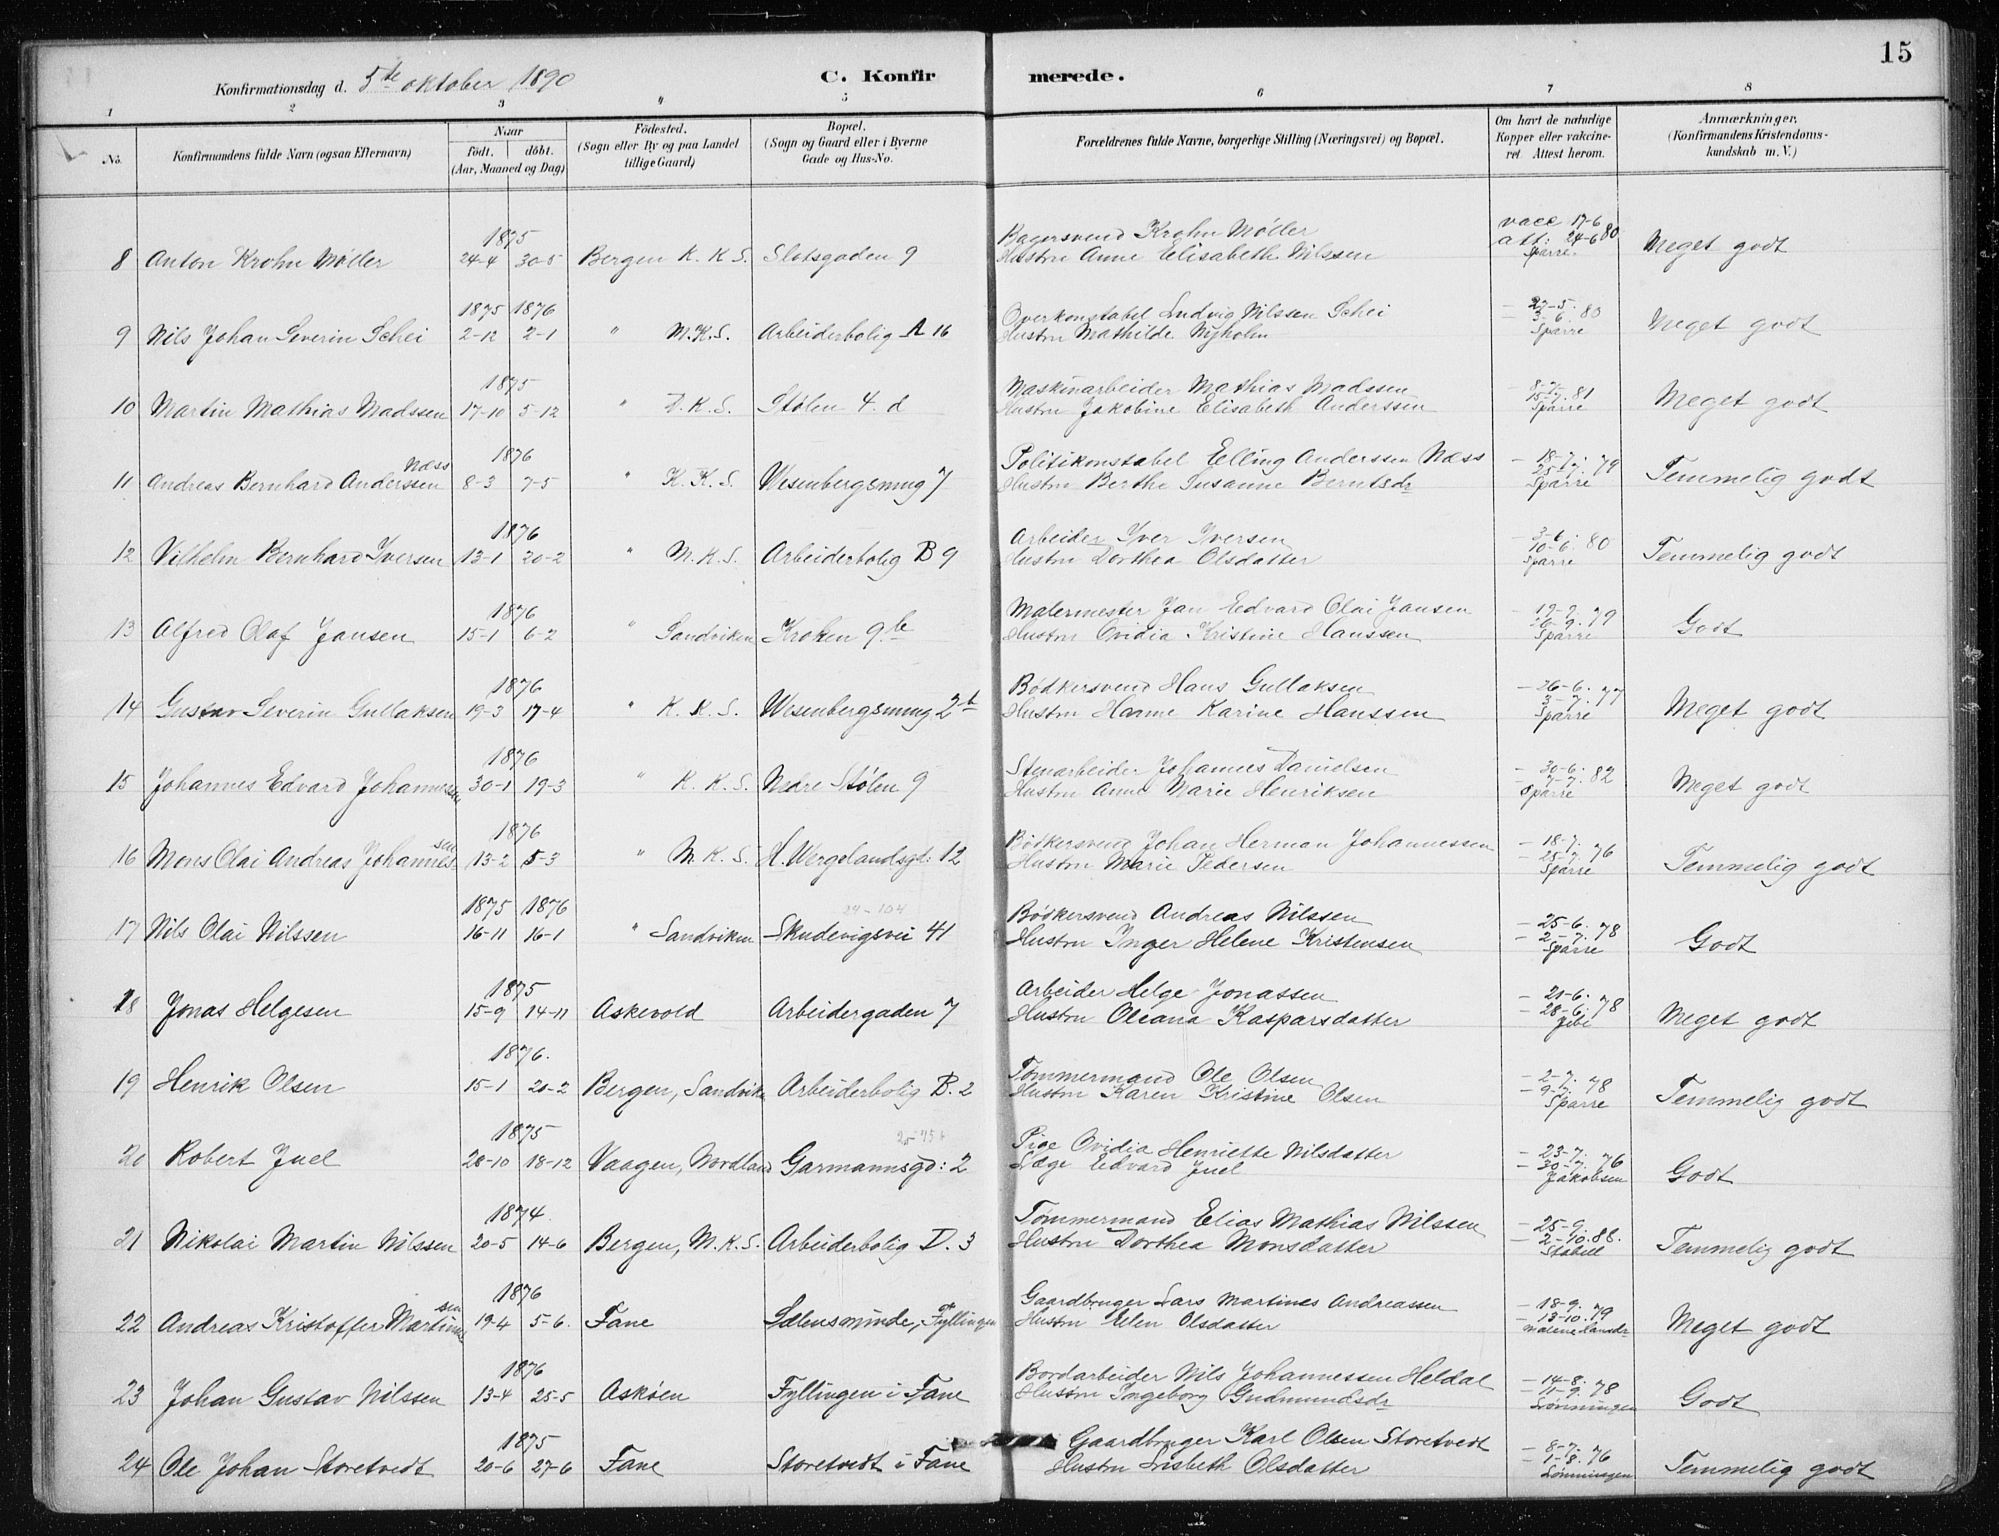 15
Konfirmationsdag d. 5te oktober 1890
C. Konfirmerede.
1 2 3 " 5 6 7 8
No.
Konfirmandens fulde Navn (ogsaa Efternavn)
Naar
Födt. döbt.
(Aar, Maaned og Dag)
Födested.
(Sogn eller By og paa Landet
tillige Gaard)
Bopæl.
(Sogn og Gaard eller i Byerne
Gade og Hus-No.
Forældrenes fulde Navne, borgerlige Stilling (Næringsvei) og Bopæl.
Om havt de naturlige
Kopper eller vakcine-
ret. Attest herom.
Anmærkninger.
(Konfirmandens Kristendoms-
kundskab m. V.)
1875 Bagersvend Krohn Møller vacc 17-6
8 Anton Krohn Møller 24-4 30-5 Bergen K. K. S. Slotsgaden 9 Hustru Anne Elisabeth Nilssen att: 24-6 80 Sparre. Meget godt
1875 1876 Overkonstabel Ludvig Nilssen Schei - 27-5.
9 Nils Johan Severin Schei 2-12 2-1 " M.K.S. Arbeiderbolig A 16 Hustru Mathilde Nyholm - 3-6. 80 Sparre Meget godt
1875 Maskinarbeider Mathias Madssen - 8-7.
10 Martin Mathias Madssen 17-10 5-12 " D.K.S. Stølen 4. d Hustru Jakobine Elisabeth Anderssen - 15-7. 81 Sparre Meget godt
Næss 1876 Politikonstabel Elling Anderssen Næss - 18-7.
11 Andreas Bernhard Anderssen 8-3 7-5 " K.K.S. Wesenbergsmug 7 Hustru Berthe Susanne Berntsdr - 25-7. 79 Sparre Temmelig godt
1876 Arbeider Iver Iversen - 3-6.
12 Vilhelm Bernhard Iversen 13-1 20-2 " M.K.S. Arbeiderbolig B 9 Hustru Dorthea Olsdatter - 10-6. 80 Sparre Temmelig godt
1876 Malermester Jan Edvard Olai Jansen - 19-9.
13 Alfred Olaf Jansen 15-1 6-2 " Sandviken Kroken 9.b Hustru Ovidia Kristine Hanssen - 26-9. 79 Sparre Godt
1876 Bødkersvend Hans Gullaksen - 26-6.
14 Gustav Severin Gullaksen 19-3 17-4 " K. K. S. Wesenbergsmug 2b Hustru Hanne Karine Hanssen - 3-7. 77 Sparre Meget godt
1876 Stenarbeider Johannes Danielsen - 30-6.
15 Johannes Edvard Johannessen 30-1 19-3 " K. K. S. Nedre Stølen 9 Hustru Anne Marie Henriksen - 7-7. 82 Sparre Meget godt
1876 Bødkersvend Johan Herman Johannessen - 18-7.
16 Mons Olai Andreas Johannessen 13-2 5-3 " M. K. S. H. Wergelandsgt: 12 Hustru Marie Pedersen - 25-7. 76 Sparre Temmelig godt
1875 1876 24-104 Bødkersvend Andreas Nilssen - 25-6.
17 Nils Olai Nilssen 16-11 16-1 " Sandviken Skudevigsvei 41 Hustru Inger Helene Kristensen - 2-7. 78 Sparre Godt
1875 Arbeider Helge Jonassen - 21-6.
18 Jonas Helgesen 15-9 14-11 Askevold Arbeidergaden 7 Hustru Oleana Kasparsdatter - 28-6. 78 Meget godt
1876. Tømmermand Ole Olsen - 2-7.
19 Henrik Olsen 15-1 20-2 Bergen, Sandviken Arbeiderbolig B. 2 Hustru Karen Kristine Olsen - 9-7. 78 Sparre Temmelig godt
1875 Pige Ovidia Henriette Nilsdatter - 23-7.
20 Robert Juel 28-10 18-12 Vaagen, Nordland Garmannsgd: 2 Læge Edvard Juel - 30-7. 76 Jakobsen Godt
1874. Tømmermand Elias Mathias Nilssen - 25-9.
21 Nikolai Martin Nilssen 20-5 14-6 Bergen, M.K.S. Arbeiderbolig D. 3 Hustru Dorthea Monsdatter - 2-10. 88. Stabell Temmelig godt
1876 Gaardbruger Lars Martines Andreassen - 18-9.
22 Andreas Kristoffer Martinussen 19-4 5-6. Fane Sælensminde, Fyllingen Hustru Elen Olsdatter - 13-10. 79 Malene Hansdr Meget godt
1876 Bordarbeider Nils Johannessen Heldal - 14-8.
23 Johan Gustav Nilssen 13-4 25-5 Askøen Fyllingen i Fane Hustru Ingeborg Gudmundsdr - 11-9. 78 Lønningen Godt
1875 Gaardbruger Karl Olsen Storetvedt - 8-7.
24 Ole Johan Storetvedt 20-6 27-6 Fane Storetvedt i Fane Hustru Lisbeth Olsdatter - 1-8. 76 Lønningen Temmelig godt